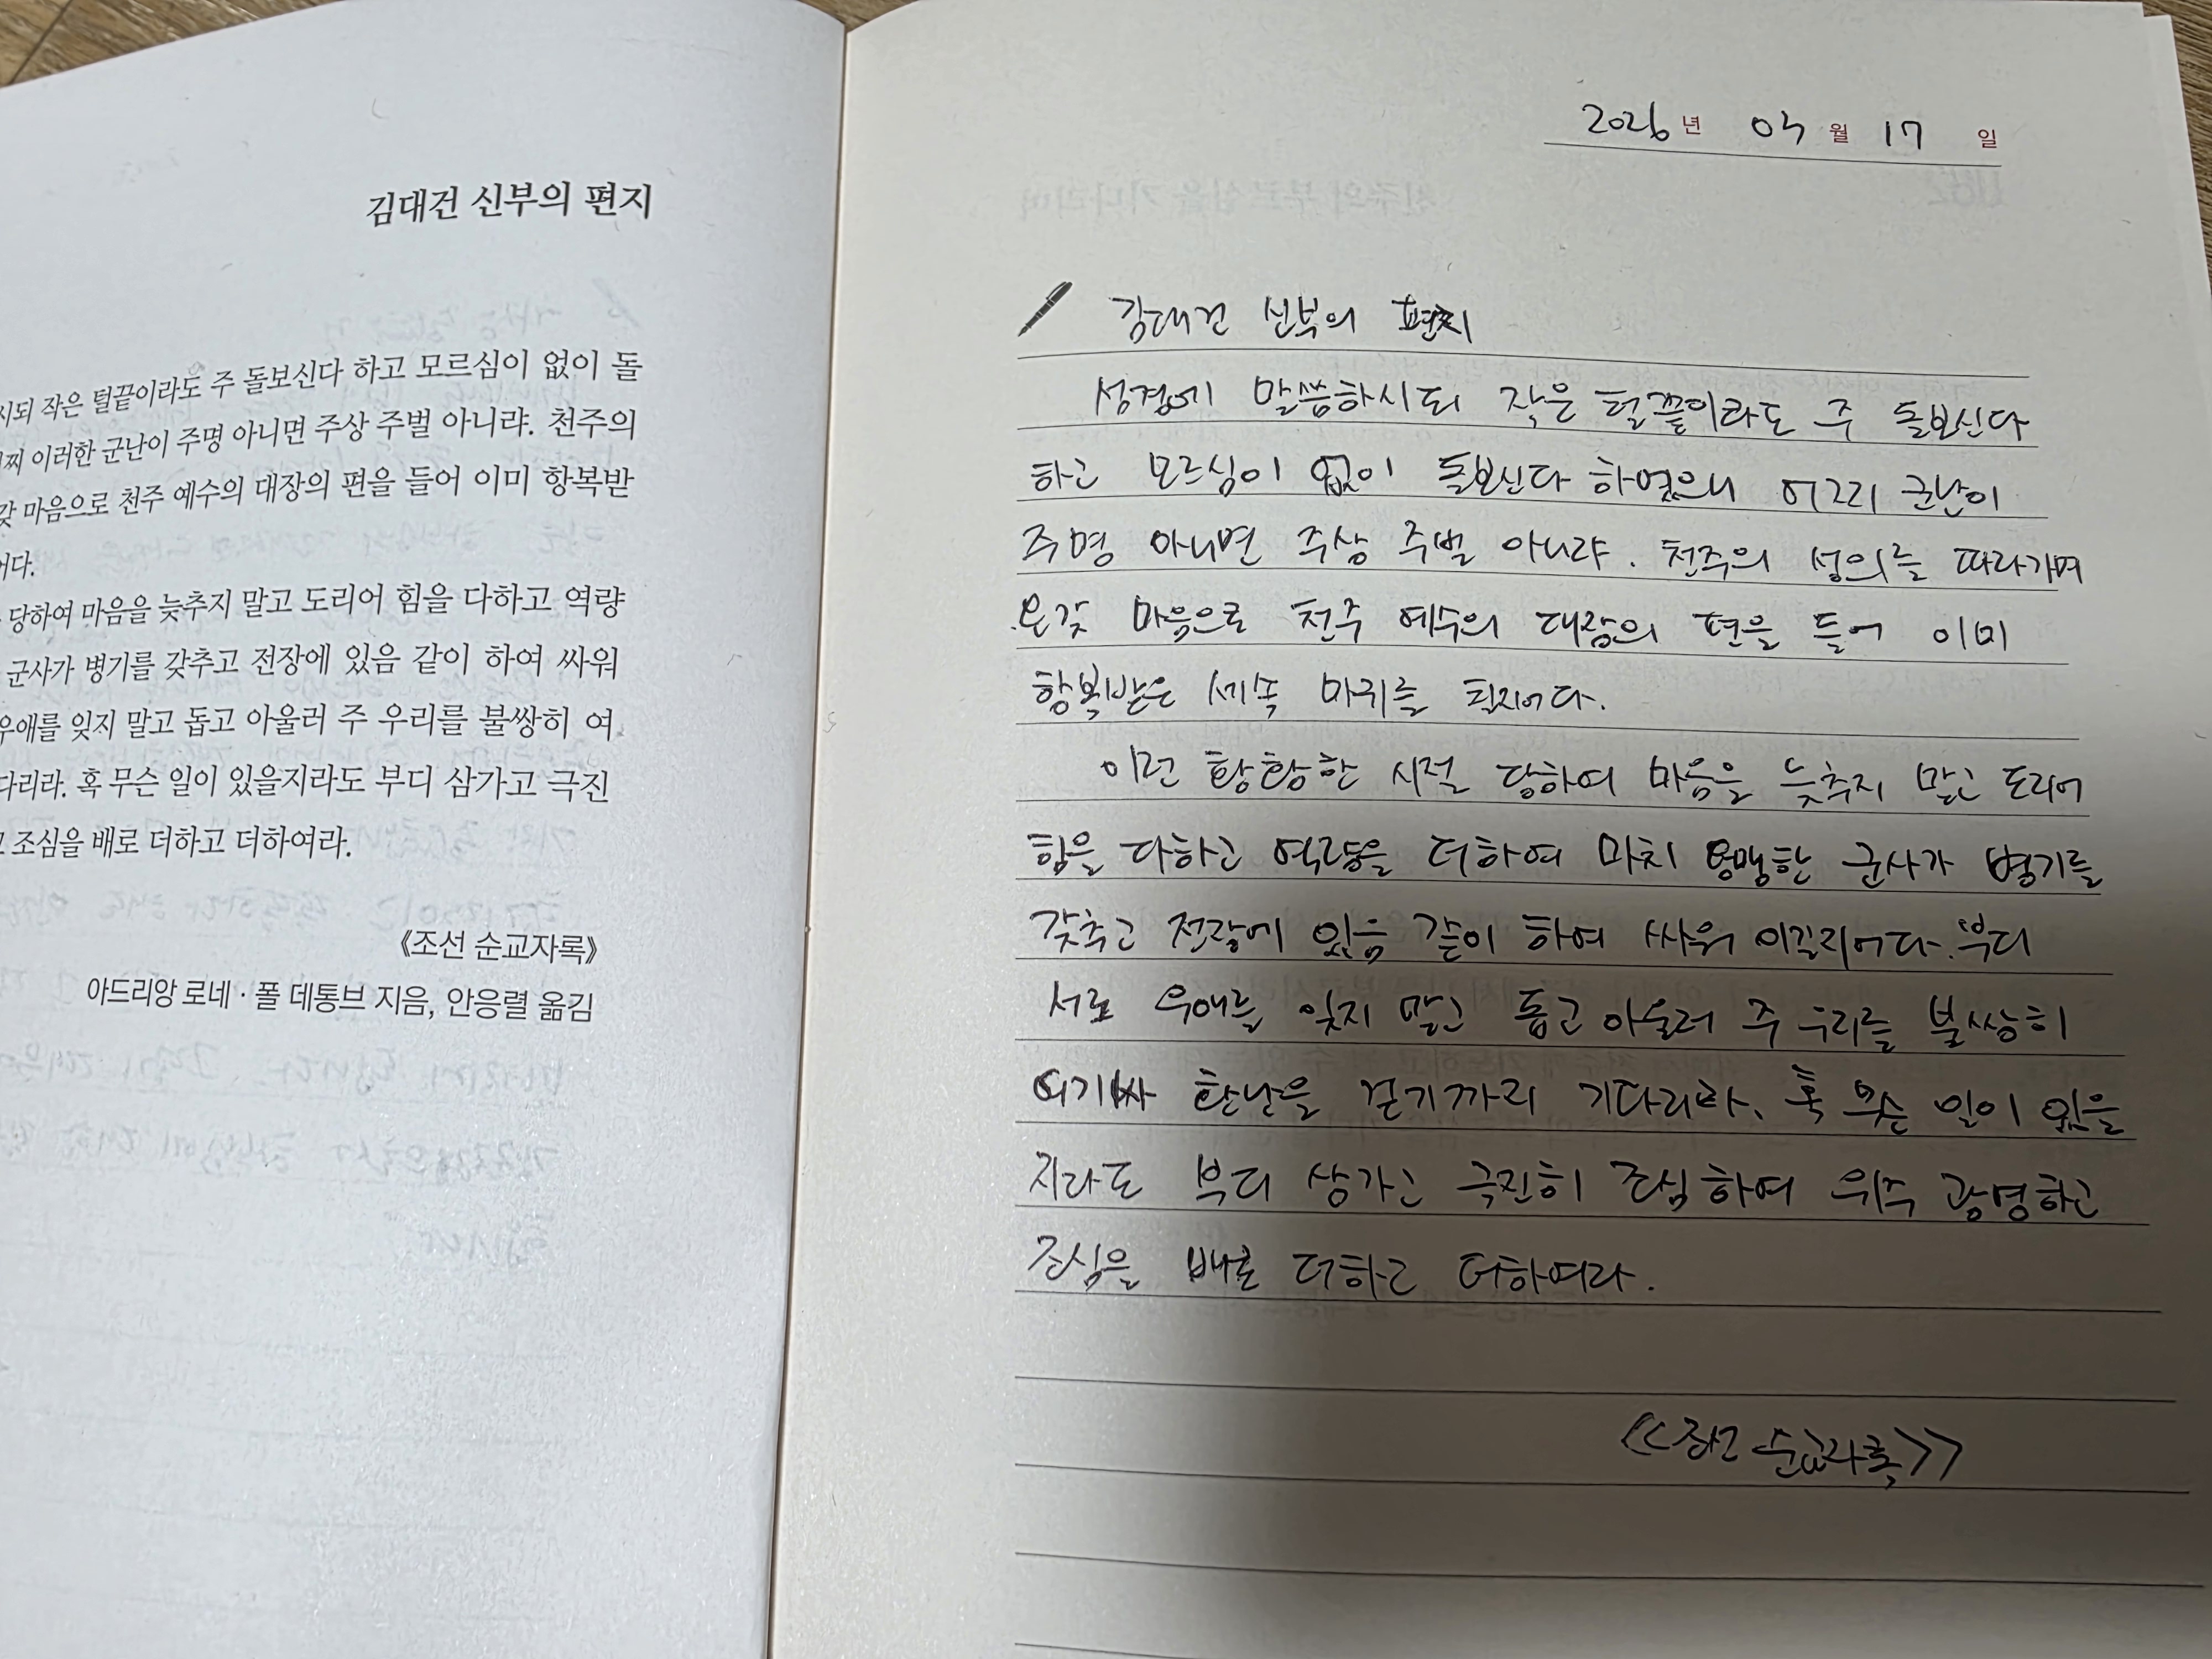 김대건 신부의 편지
시되 작은 털끝이라도 주 돌보신다 하고 모르심이 없이 돌
찌 이러한 군난이 주명 아니면 주상 주벌 아니랴. 천주의
갖 마음으로 천주 예수의 대장의 편을 들어 이미 항복받
어다.
당하여 마음을 늦추지 말고 도리어 힘을 다하고 역량
군사가 병기를 갖추고 전장에 있음 같이 하여 싸워
우애를 잊지 말고 돕고 아울러 주 우리를 불쌍히 여
다리라. 혹 무슨 일이 있을지라도 부디 삼가고 극진
고 조심을 배로 더하고 더하여라.
《조선 순교자록》
아드리앙 로네 · 폴 데통브 지음, 안응렬 옮김
2026년 월 17 일
김대건 신부의 편지
성경에 말씀하시되 작은 털끝이라도 주 돌보신다
하고 모르심이 없이 돌보신다 하였으니 어찌 군난이
주명 아니면 주상 주벌 아니랴. 천주의 성의를 따라가며
온갖 마음으로 천주 예수의 대장의 편을 들어 이미
항복받은 세속 마귀를 칠지어다.
이런 황황한 시절 당하여 마음을 늦추지 말고 도리어
힘을 다하고 역량을 더하여 마치 용맹한 군사가 병기를
갖추고 전장에 있음 같이 하여 싸워 이길지어다. 부디
서로 우애를 잊지 말고 돕고 아울러 주 우리를 불쌍히
여기사 환난을 걷기까지 기다리라. 혹 무슨 일이 있을
지라도 부디 삼가고 극진히 조심하여 위주 광영하고
조심을 배로 더하고 더하여라.
<<조선 순교자록>>